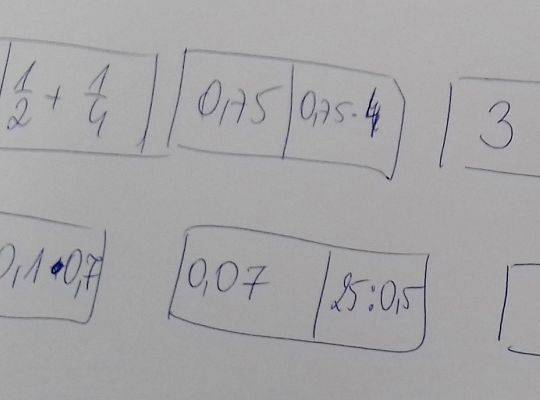 1/2 + 1/4 0,75 0,75·4 3
0,1·0,7 0,07 25:0,5